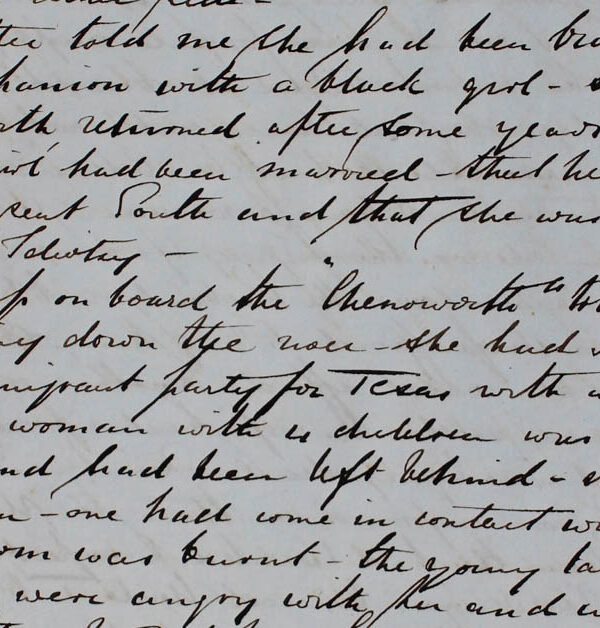 told me she had been
with a black girl -
returned after some years
had been married - that he
sent South and that she was
Idiotcy -
up on board the "Chenoworth"
down the river - she had
party for Texas with
woman with 4 children was
and had been left behind -
- one had come in contact
was burnt - the young
were angry with her and